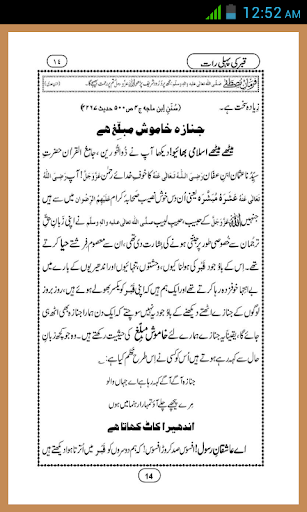 12:52 AM
۱٤
قبر کی پہلی رات
زیادہ سخت ہے۔
(سُنَنِ اِبن ماجہ ج٣ ص٥٠٠ حدیث ٤٢٦٧)
جنازہ خاموش مبلّغ ہے
میٹھے میٹھے اسلامی بھائیو! دیکھا آپ نے ذُوالنُّورین، جامعُ القرآن حضرتِ
سیِّدُنا عثمان ابنِ عفان رَضِیَ اللہُ تَعَالٰی عَنْہُ کا خوفِ خدائے رحمٰن عَزَّوَجَلَّ! آپ رَضِیَ اللہُ
تَعَالٰی عَنْہُ عَشَرَۂ مُبَشَّرَہ یعنی اُن دس خوش نصیب صحابۂ کرام عَلَیْہِمُ الرِّضْوَان میں سے ہیں
جنہیں اللہ عَزَّوَجَلَّ کے حبیب، حبیبِ لبیب صلی اللہ تعالٰی علیہ واٰلہٖ وسلّم نے اپنی زبانِ حق
ترجمان سے خصوصی طور پر جنتی ہونے کی بشارت دی تھی، ان سے معصوم فرشتے حیا کرتے
تھے اس کے باوُجود قبر کی ہولناکیوں، وحشتوں، تنہائیوں اور اندھیریوں کے بارے میں
بے انتہا خوفزدہ رہا کرتے تھے اور ایک ہم ہیں کہ اپنی قبر کو یکسر بھولے ہوئے ہیں، روز بروز
جنازے اٹھتے دیکھنے کے باوُجود یہ نہیں سوچتے کہ ایک دن ہمارا جنازہ بھی اٹھ ہی
جائے گا، یقیناً یہ جنازے ہمارے لئے خاموش مبلّغ کی حیثیت رکھتے ہیں۔ وہ جو کچھ زبانِ
حال سے کہہ رہے ہوتے ہیں اُس کو کسی نے اِس طرح نَظم کیا ہے۔
جنازہ آگے آگے کہہ رہا ہے اے جہاں والو
مِرے پیچھے چلے آؤ تمہارا رہنما میں ہوں
اندھیرا کاٹ کھاتا ہے
اے عاشقانِ رسول! افسوس صد کروڑ افسوس! کہ ہم دوسروں کو قبر میں اُترتا ہوا دیکھتے ہیں
14